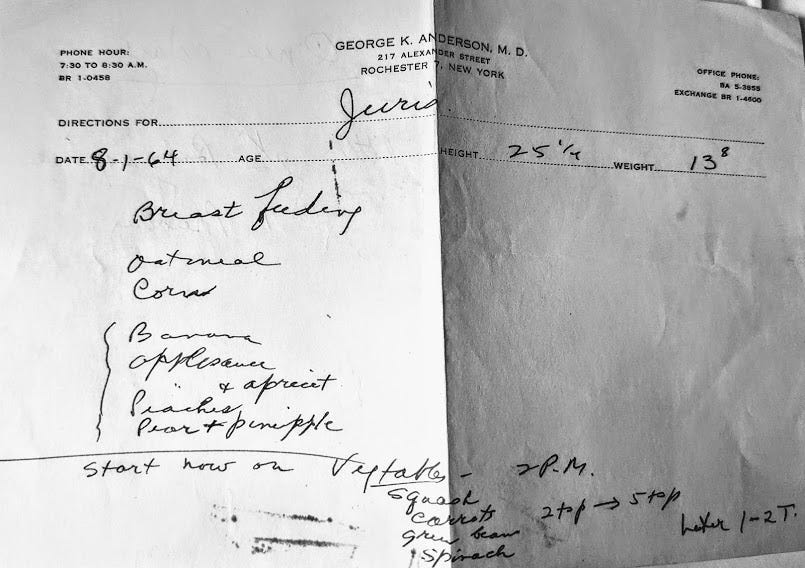 PHONE HOUR:
7:30 TO 8:30 A.M.
BR 1-0458
GEORGE K. ANDERSON, M. D.
217 ALEXANDER STREET
ROCHESTER 7, NEW YORK
OFFICE PHONE:
BA 5-3855
EXCHANGE BR 1-4600
DIRECTIONS FOR Juris.
DATE 8-1-64 AGE HEIGHT 25 1/4 WEIGHT 13 8
Breast feeding
Oatmeal
Banana
applesauce
+ apricot
Peaches
Pear + pinipple
Start now on Vegtables - 2 P.M.
Squash
carrots 2 tsp → 5 tsp
green beans Later 1-2 T.
Spinach